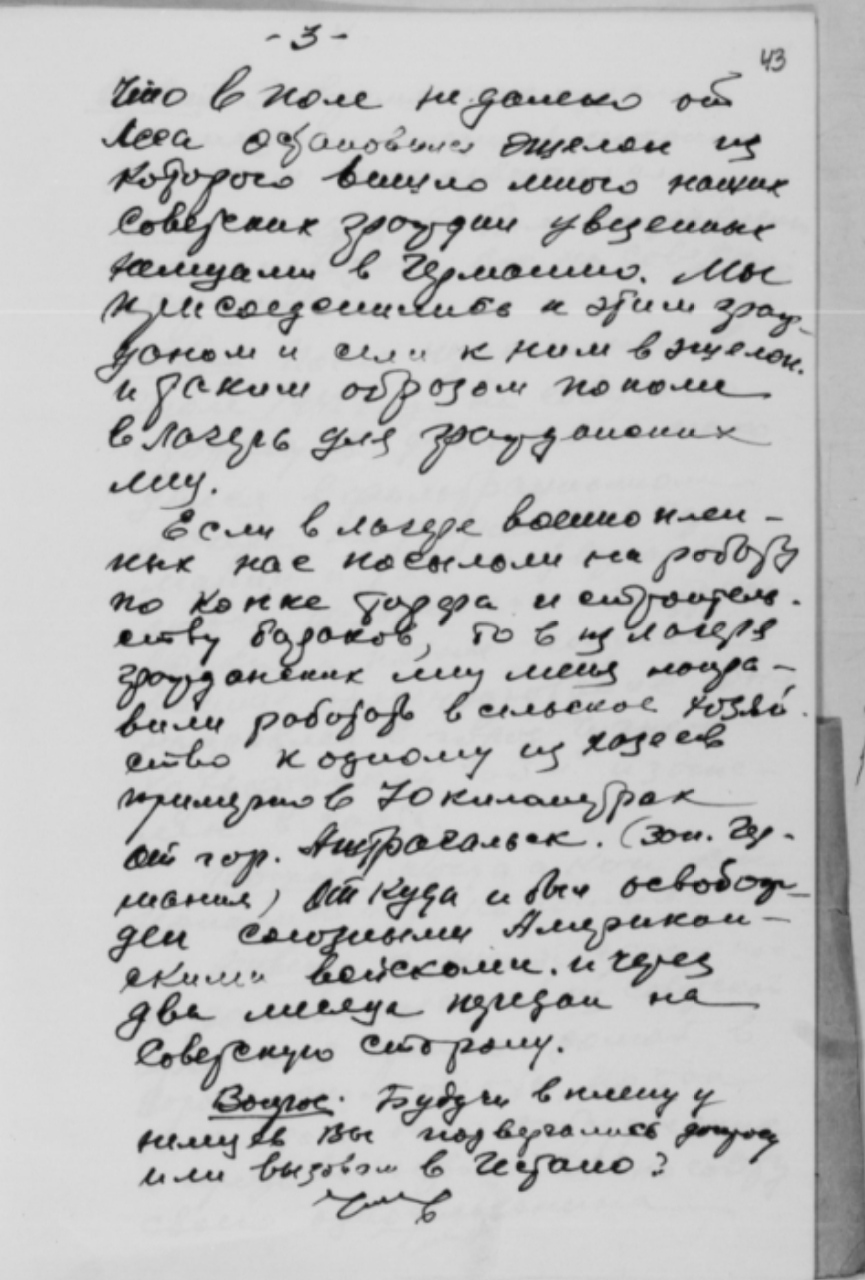 - 3 -
43
что в поле недалеко от
леса остановился эшелон из
которого вышло много наших
советских граждан увезенных
немцами в Германию. Мы
присоединились к этим граж-
даном и сели к ним в эшелон.
и таким образом попали
в лагерь для гражданских
лиц.
Если в лагере военноплен-
ных нас посылали на работу
по копке торфа и строитель-
ству бараков, то в из лагеря
гражданских лиц меня напра-
вили работать в сельское хозяй-
ство к одному из хозяев
примерно в 70 километрах
от гор. (Зап. Гер-
мания) откуда и был освобож-
ден союзными Американ-
скими войсками. и через
два месяца передан на
Советскую сторону.
Вопрос. Будучи в плену у
немцев Вы подвергались допросу
или вызовам в Гестапо?